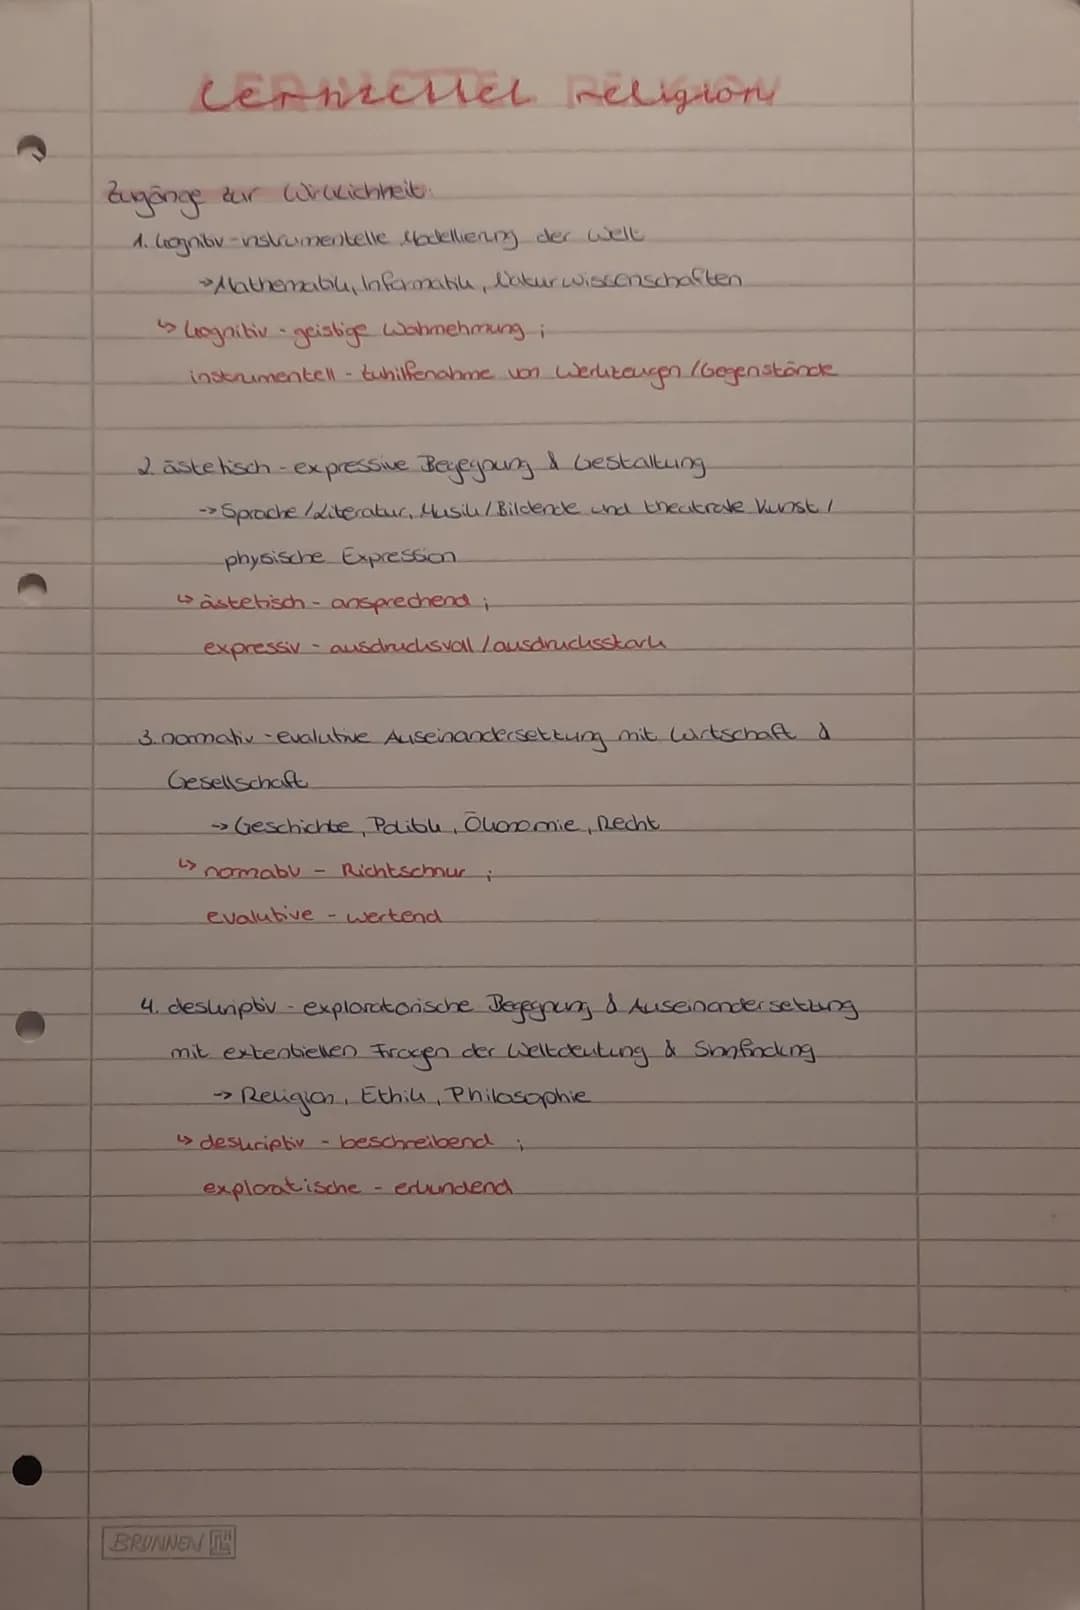 Lernzettel Religion
Zugänge zur Wirklichkeit:
1. kognitiv-instrumentelle Modellierung der Welt
→ Mathematik, Informatik, Naturwissenschaften
↳ kognitiv - geistige Wahrnehmung ;
instrumentell - Zuhilfenahme von Werkzeugen / Gegenstände
2. ästetisch - expressive Begegnung & Gestaltung
→ Sprache / Literatur, Musik / Bildende und theatrale Kunst /
physische Expression
↳ ästetisch - ansprechend ;
expressiv - ausdrucksvoll / ausdrucksstark
3. normativ - evalutive Auseinandersetzung mit Wirtschaft &
Gesellschaft
→ Geschichte, Politik, Ökonomie, Recht
↳ normativ - Richtschnur ;
evalutive - wertend
4. deskriptiv - exploratorische Begegnung & Auseinandersetzung
mit extentiellen Fragen der Weltdeutung & Sinnfindung
→ Religion, Ethik, Philosophie
↳ deskriptiv - beschreibend ;
exploratische - erkundend
BRUNNEN